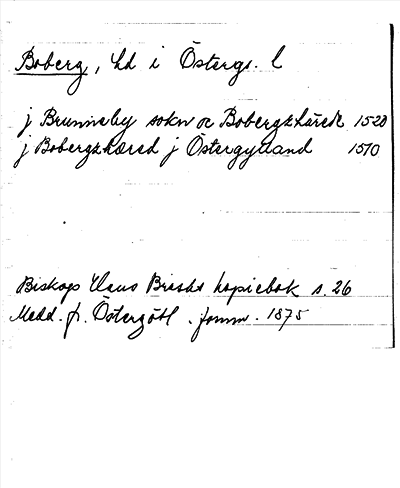 Boberg, hd i Östergö. l
j Brunneby sokn oc Bobergxhäredt 1520
j Bobergxhæred j Östergytland 1510
Biskops Hans Brasks kopiebok s. 26
Medd. fr. Östergötl. fornm. 1875